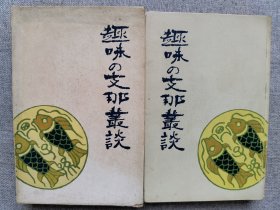 趣味の支那叢談
趣味の支那叢談